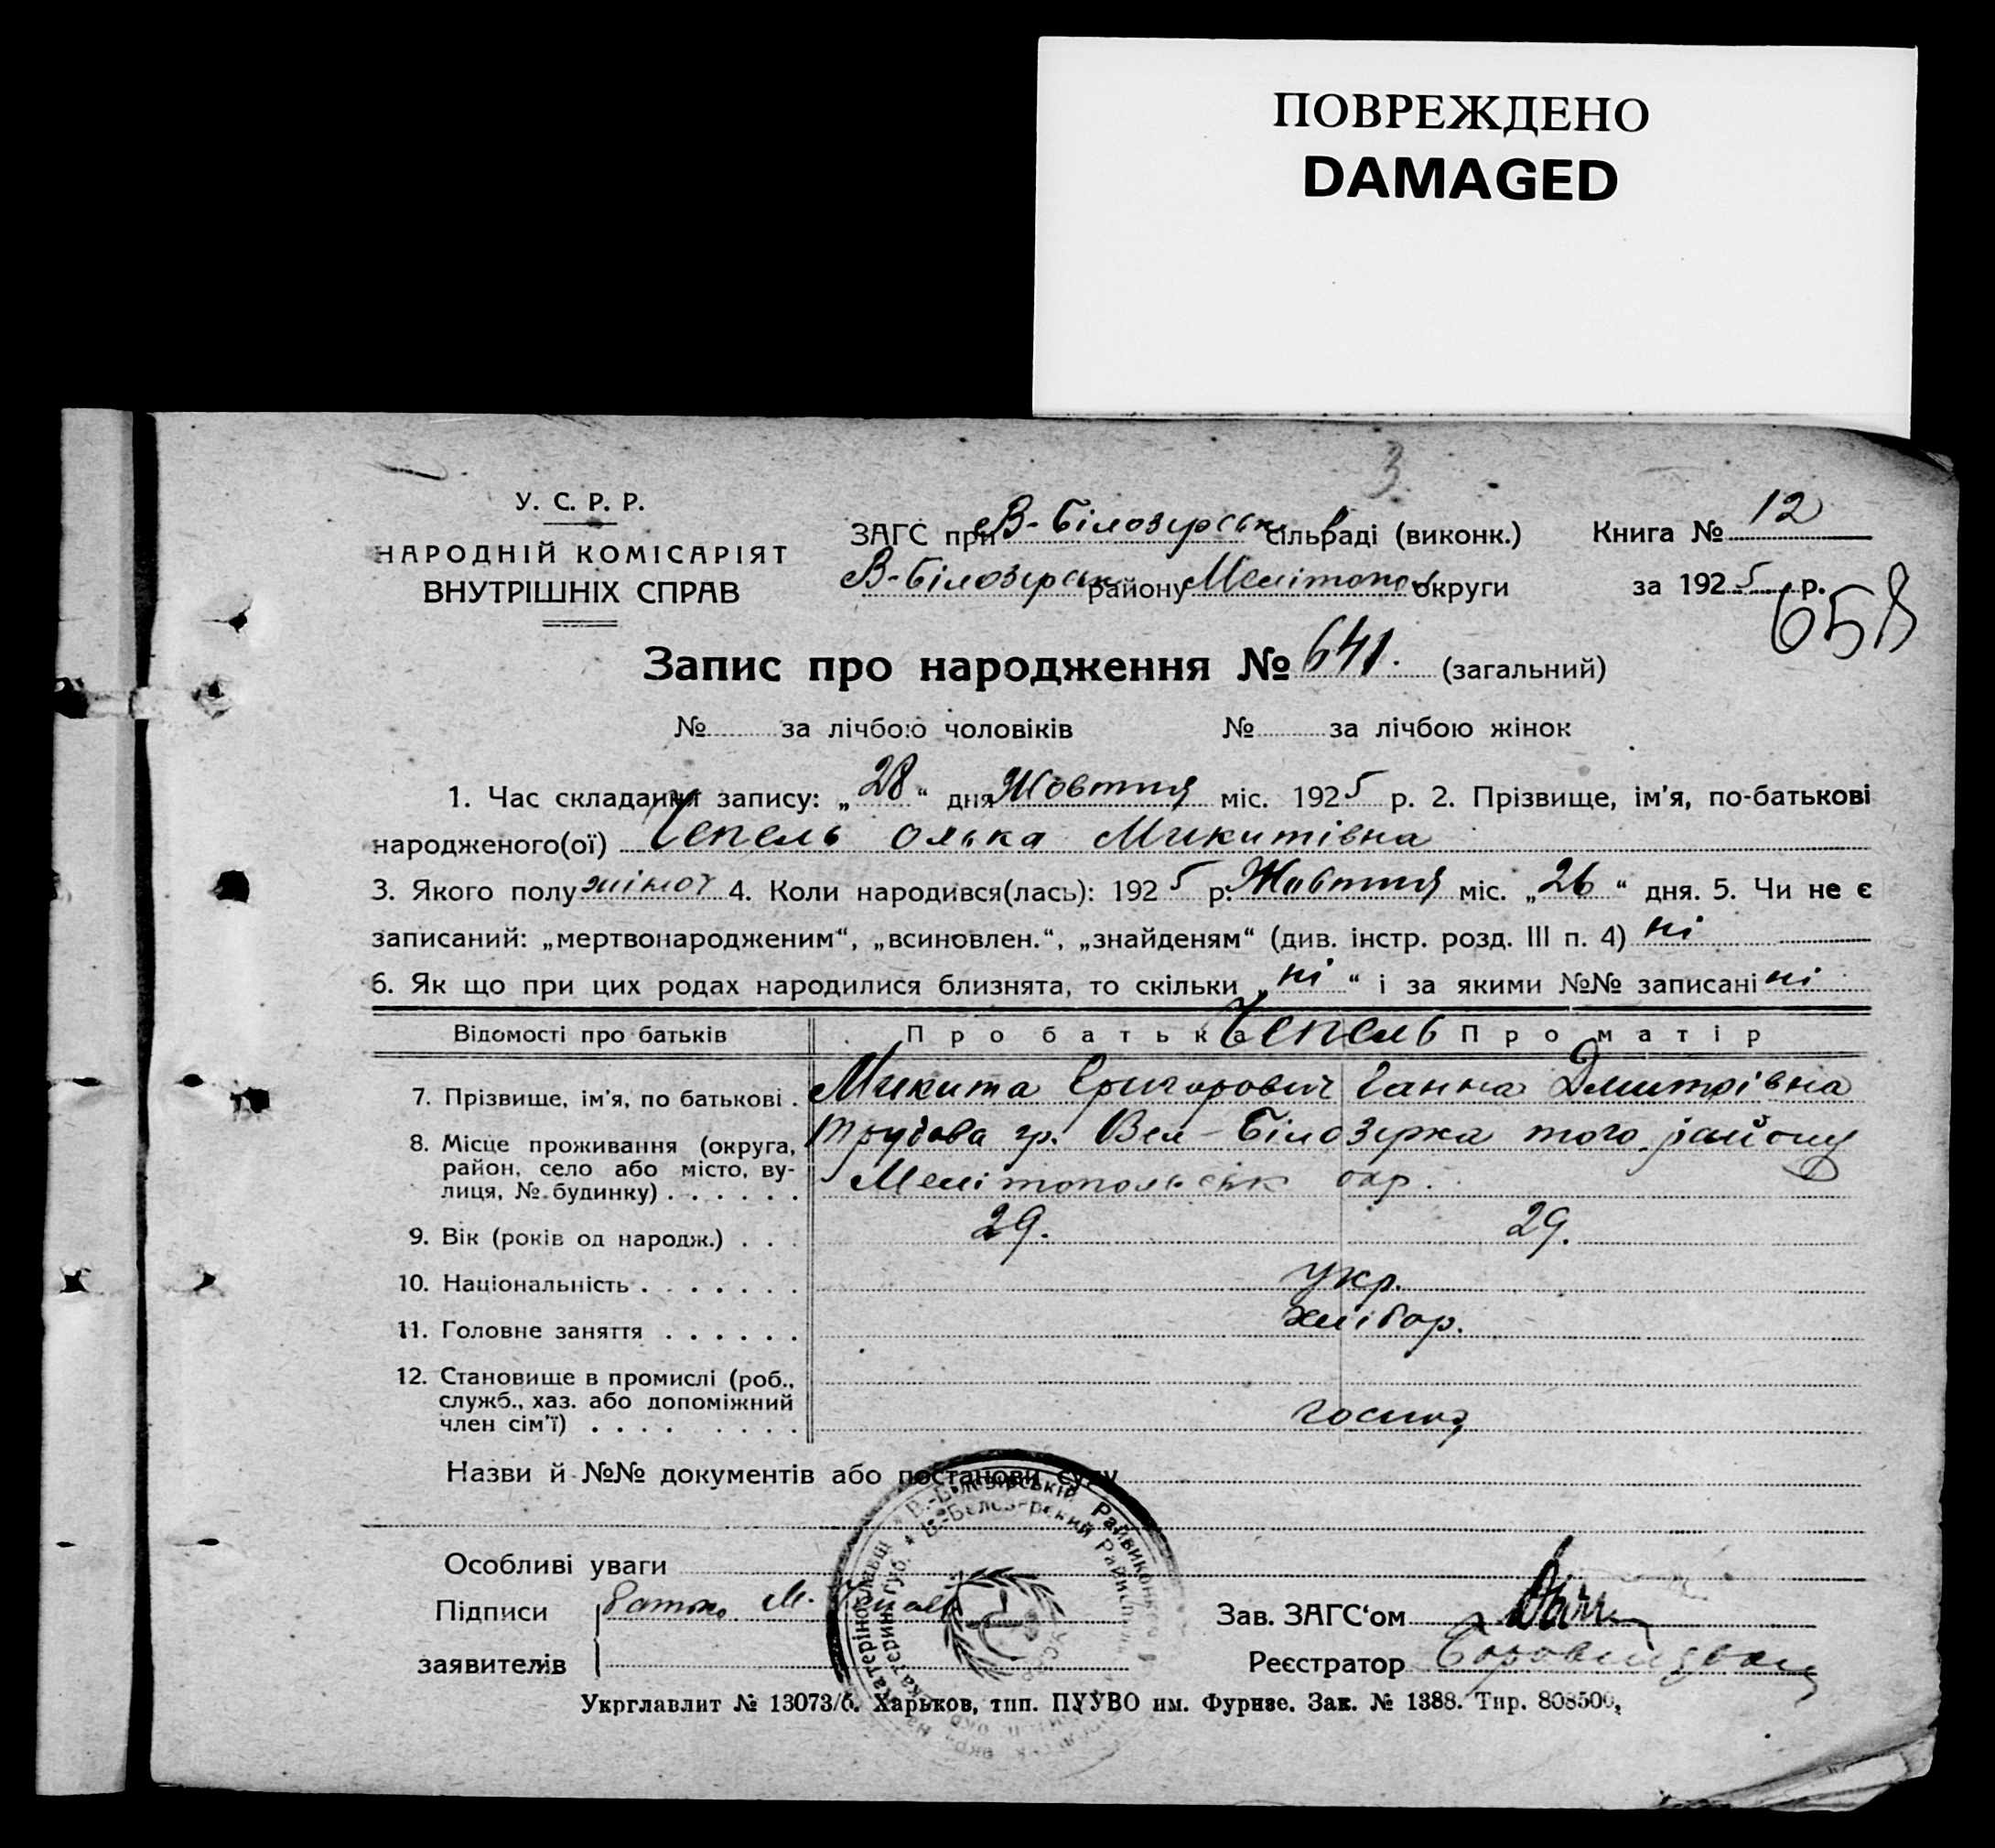 ПОВРЕЖДЕНО
DAMAGED
3
У. С. Р. Р.
НАРОДНІЙ КОМІСАРІЯТ
ВНУТРІШНІХ СПРАВ
ЗАГС при В-Білозирськ сільраді (виконк.)
В-Білозирськ району Мелітопол округи
Книга № 12
за 1925 р.
658
Запис про народження № 641. (загальний)
№ за лічбою чоловіків № за лічбою жінок
1. Час складання запису: „28“ дня Жовтня міс. 1925 р. 2. Прізвище, ім'я, по-батькові
народженого(ої) Чепель Олька Микитівна
3. Якого полу жіноч 4. Коли народився(лась): 1925 р. Жовтня міс. „26“ дня. 5. Чи не є
записаний: „мертвонародженим“, „всиновлен.“, „знайденям“ (див. інстр. розд. III п. 4) ні
6. Як що при цих родах народилися близнята, то скільки „ні“ і за якими №№ записані ні
Відомості про батьків Про батька Чепель Про матір
7. Прізвище, ім'я, по батькові . Микита Григорович Ганна Дмитрівна
8. Місце проживання (округа, район, село або місто, вулиця, № будинку) . . . . . . Трудова гр. Вел-Білозирка того району
Мелітопольськ окр.
9. Вік (років од народж.) . . . 29. 29.
10. Національність . . . . . . . укр.
11. Головне заняття . . . . . . хлібор.
12. Становище в промислі (роб., служб., хаз. або допоміжний член сім'ї) . . . . . . . .
Назви й №№ документів або постанови суду
В.-Білозірський Райвиконком
В.-Белозерский Райисполк
Особливі уваги
Підписи заявителів
М. Чепель
Зав. ЗАГС'ом
Реєстратор
Укрглавлит № 13073/б. Харьков, тип. ПУУВО им. Фрунзе. Зак. № 1388. Тир. 808500,